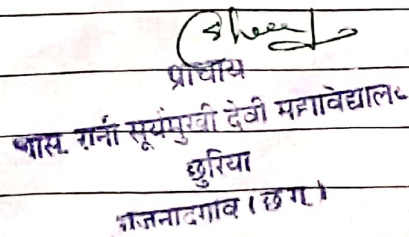 प्राचार्य
शास. रानी सूर्यमुखी देवी महाविद्यालय
छुरिया
राजनांदगांव (छ.ग.)